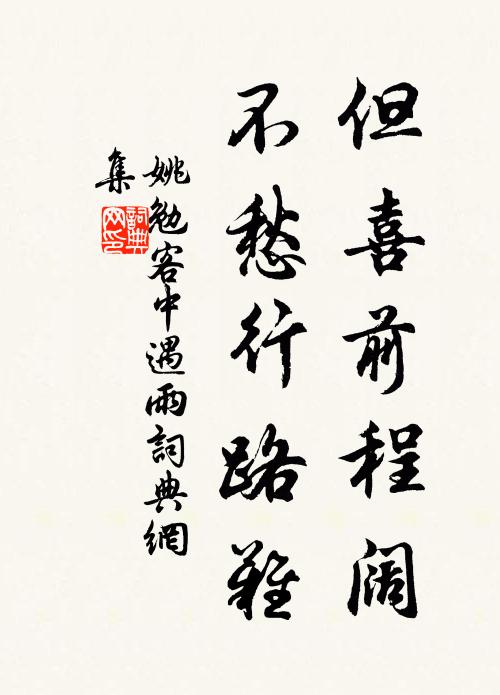 但喜前程阔
不愁行路難
姚勉客中遇雨詞典網
集
詞典
网印